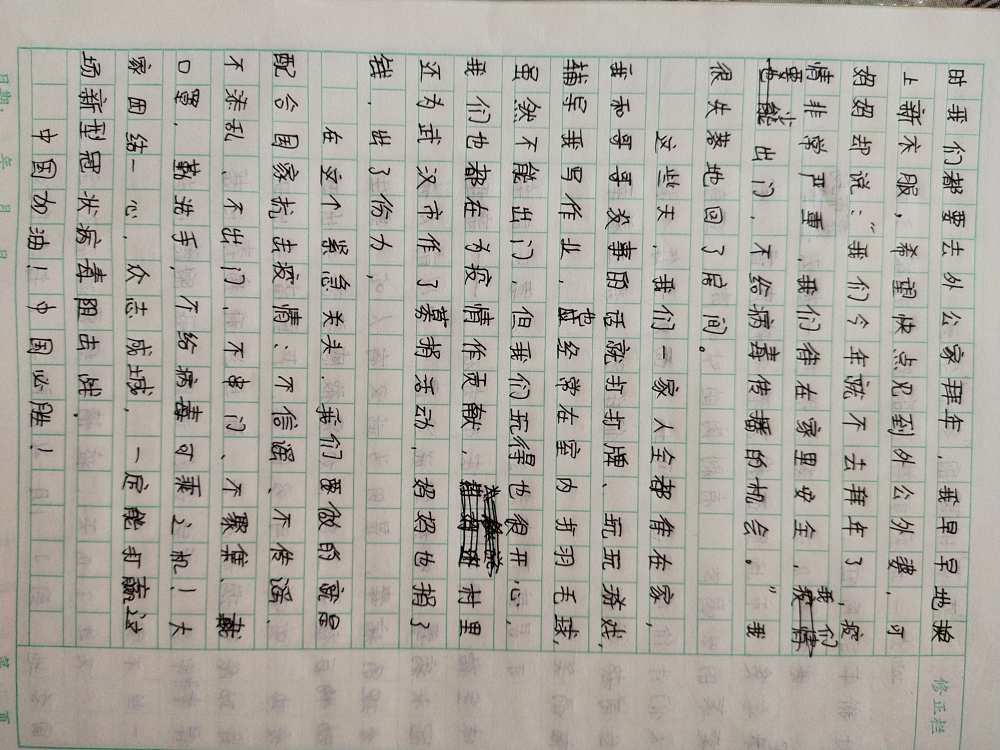 修正栏
时我们都要去外公家拜年，我早早地换
上新衣服，希望快点见到外公外婆，可
妈妈却说：“我们今年就不去拜年了，疫
情非常严重，我们待在家里安全，我们
要少出门，不给病毒传播的机会。”我
很失落地回了房间。
这些天，我们一家人全都待在家，
我和哥哥没事的话就打打牌、玩玩游戏，
辅导我写作业，也经常在室内打羽毛球，
虽然不能出门，但我们玩得也很开心，
我们也都在为疫情作贡献，村里
还为武汉市作了募捐活动，妈妈也捐了
钱，出了份力，
在这个紧急关头，我们要做的就是
配合国家抗击疫情：不信谣、不传谣、
不添乱、不出门、不串门、不聚集、戴
口罩，勤洗手，不给病毒可乘之机！大
家团结一心，众志成城，一定能打赢这
场新型冠状病毒阻击战，
中国加油！中国必胜！
日期： 年 月 日 第 页